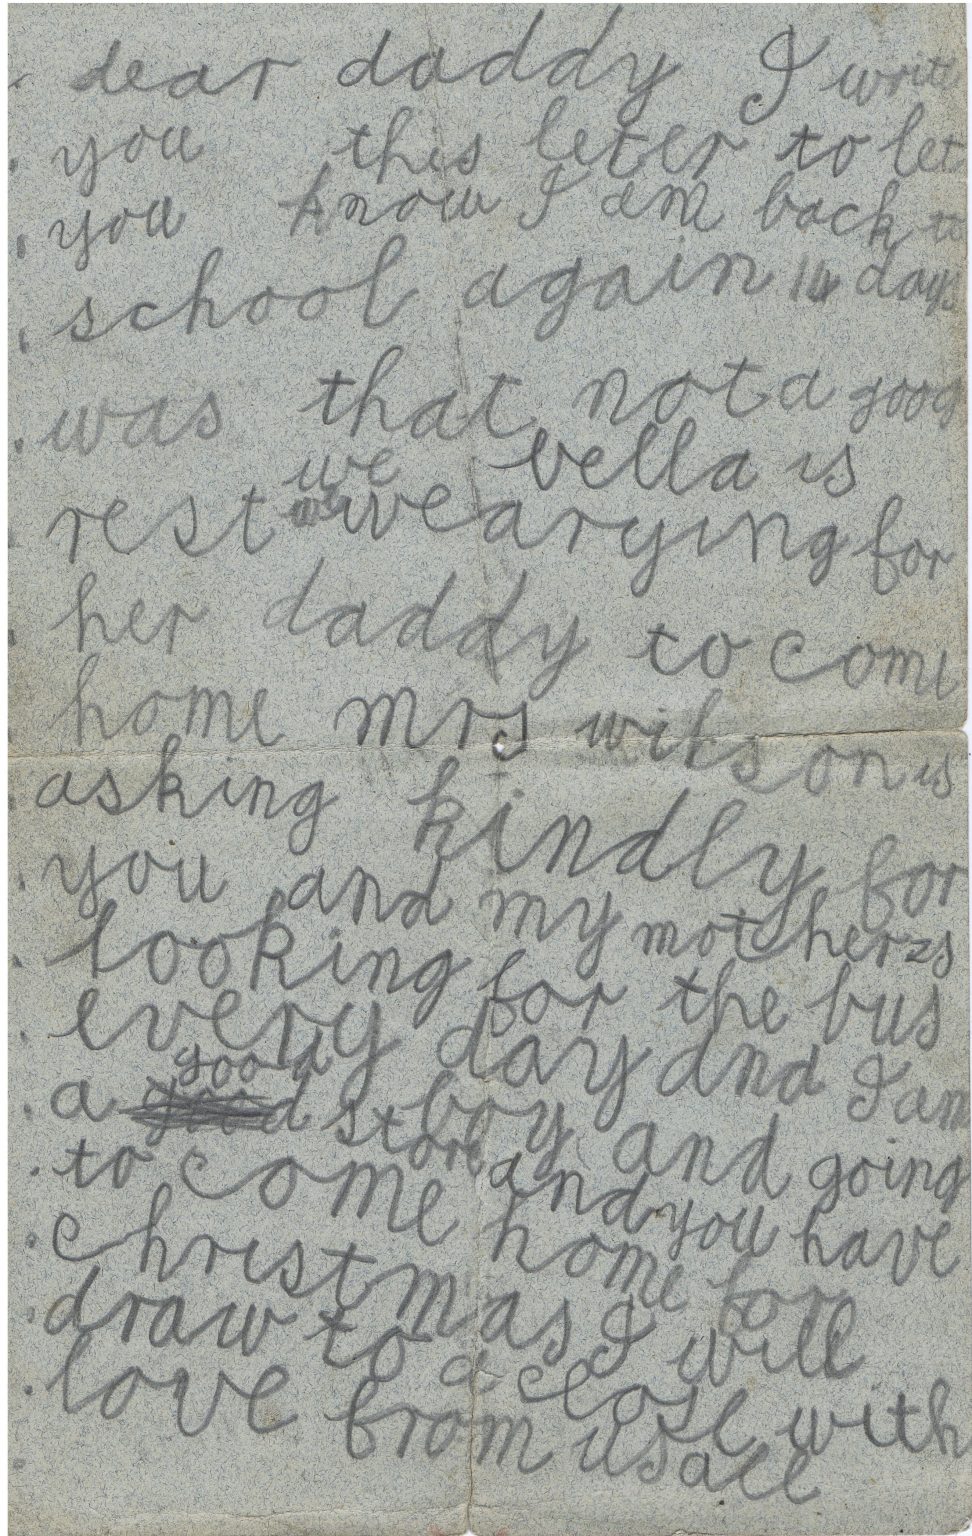 dear daddy I write
you this leter to let
you know I am back to
school again 14 days
was that not a good
we vella is
rest wearying for
her daddy to come
home mrs wilson is
asking kindly for
you and my mother is
looking for the bus
every day and I am
good
a good boy and going
to store and you have
come home for
christmas I will
draw to a close with
love from us all